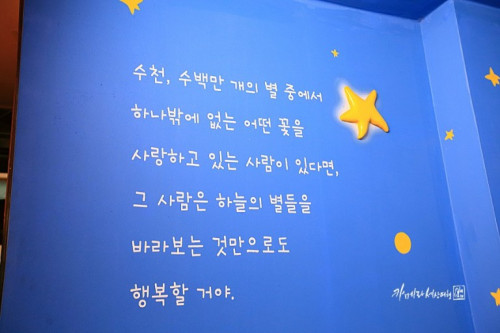 수천, 수백만 개의 별 중에서
하나밖에 없는 어떤 꽃을
사랑하고 있는 사람이 있다면,
그 사람은 하늘의 별들을
바라보는 것만으로도
행복할 거야.